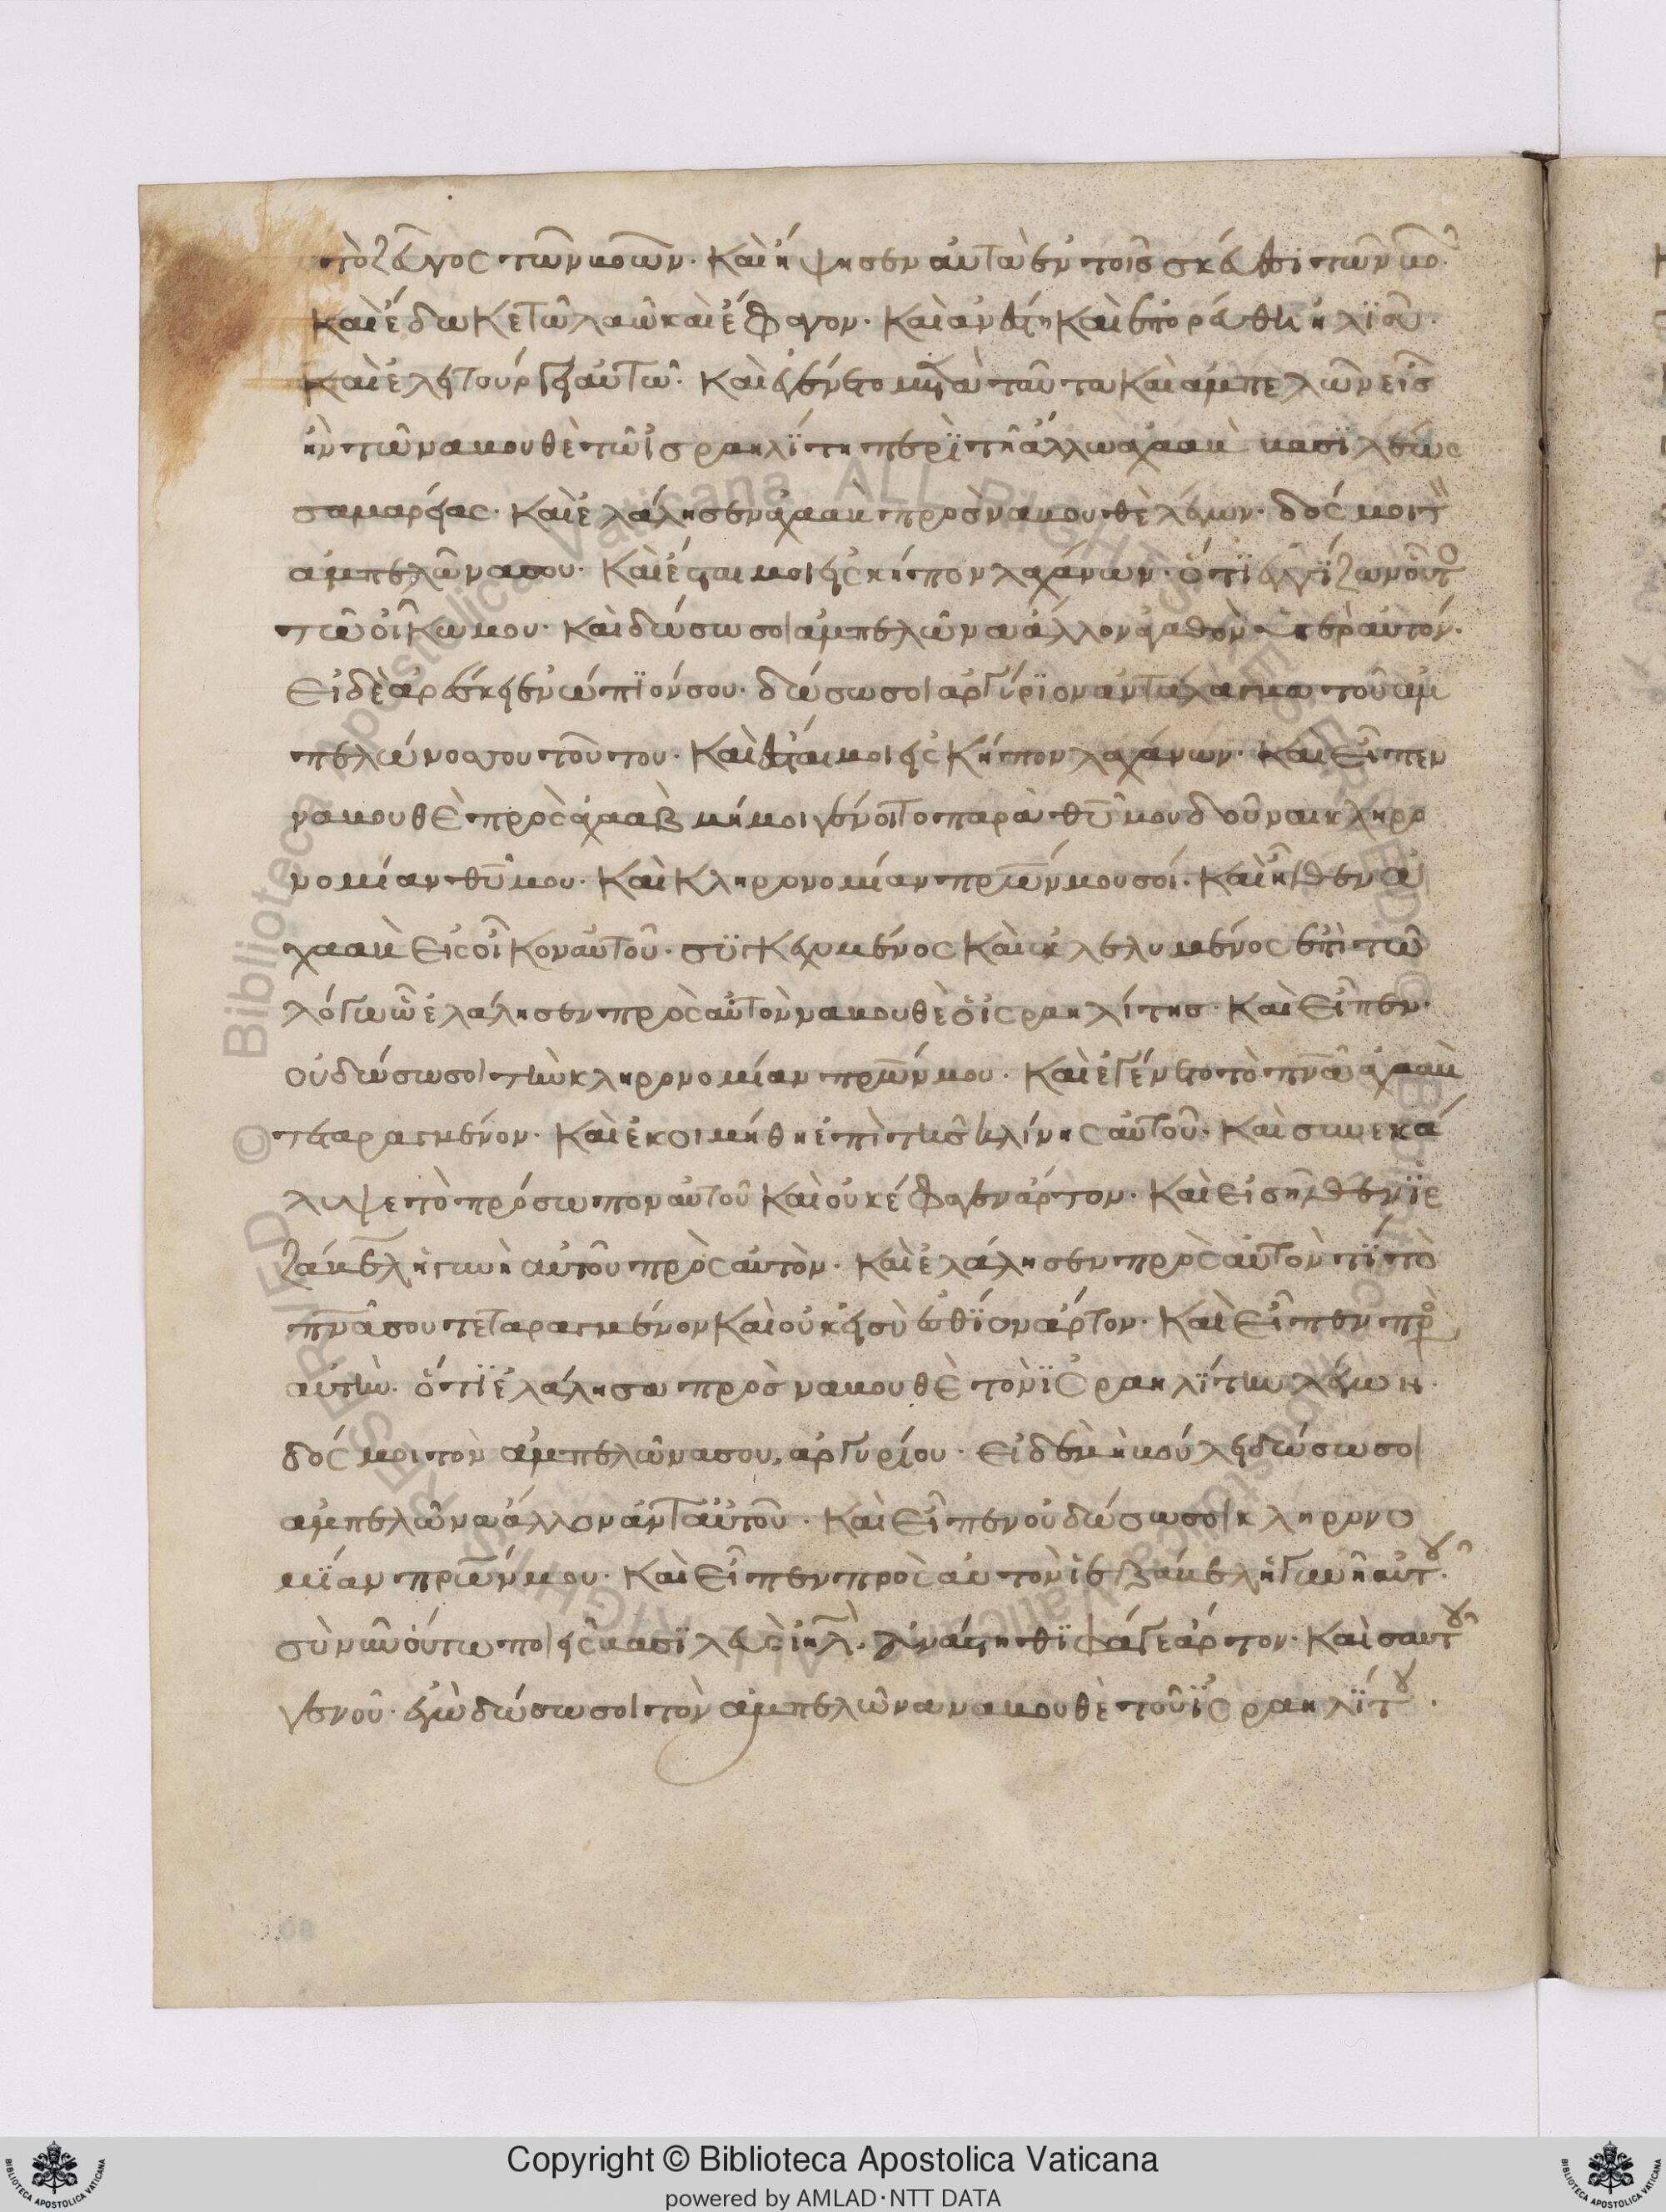 τὸ ζεῦγος τῶν βοῶν· Καὶ ἥψησεν αὐτὰ ἐν τοῖς σκεύεσι τῶν βο·
Καὶ ἔδωκε τῶ λαῶ καὶ ἔφαγον· Καὶ ἀνέστη Καὶ ἐπορεύθη ἠλϊοῦ·
Καὶ ἐλειτούργει αὐτῶ· Καὶ ἐγένετο μετὰ ταῦτα Καὶ ἀμπελῶν εἷσ
ἦν τῶ ναβουθὲ τῶ ἰσραηλίτη περὶ τῆ ἅλλω ἀχαὰβ βασϊλέως
σαμαρείας· Καὶ ἐλάλησεν ἀχαὰβ πρὸς ναβουθὲ λέγων· δός μοι τ
ἀμπελῶνα σου· Καὶ ἔσται μοι εἰς κῆπον λαχάνων· ὅτϊ ἐγγίζων οὗτο
τῶ οἴκω μου· καὶ δώσω σοι ἀμπελῶνα ἄλλον ἀγαθὸν ὑπὲρ αὐτόν·
Εἰ δὲ ἀρέσκει ἐνώπϊόν σου· δώσω σοι ἀργύρϊον ἀντάλαγμα τοῦ ἀμ
πελώνος σου τούτου· Καὶ ἔσται μοι εἰς Κήπον λαχάνων· Καὶ Εἶπεν
ναβουθὲ πρὸς ἀχαὰβ μή μοι γένοιτο παρὰ θῦ μου δοῦναι κληρο
νομίαν θῦ μου· Καὶ Κληρονομίαν πρων μου σοί· Καὶ ἦλθεν ἀ
χαὰβ Εἰς οἶκον αὐτοῦ· συϊγκεχυμένος Καὶ ἐκλελυμένος ἐπὶ τῶ
λόγω ὧ ἐλάλησεν πρὸς αὐτὸν ναβουθὲ ὁ ἰσραηλίτης· Καὶ Εἶπεν·
οὐ δώσω σοι τὴν κληρονομίαν πρων μου· Καὶ ἐγένετο τὸ πνα ἀχαὰβ
τεταραγμένον· Καὶ ἐκοιμήθη ἐπὶ τῆς κλίνης αὐτοῦ· Καὶ συνεκά
λυψε τὸ πρόσωπον αὐτοῦ Καὶ οὐκ ἔφαγεν ἄρτον· Καὶ Εἰσῆλθεν ϊε
ζάβελ ἡ γυνὴ αὐτοῦ πρὸς αὐτὸν· Καὶ ἐλάλησεν πρὸς αὐτὸν τί τὸ
πνα σου τεταραγμένον Καὶ οὐκ εἶ σὺ ἐσθϊων ἄρτον· Καὶ Εἶπεν πρὸ
αὐτὴν· ὅτϊ ἐλάλησα πρὸς ναβουθὲ τὸν ϊσραηλίτην λέγων·
δός μοι τὸν ἀμπελῶνα σου, ἀργυρίου· Εἰ δὲ μὴ βούλει δώσω σοι
ἀμπελῶνα ἄλλον ἀντ' αὐτοῦ· Καὶ Εἶπεν οὐ δώσω σοι κληρονο
μΐαν πρων μου· Καὶ Εἶπεν πρὸς αὐτὸν ἰεζάβελ ἡ γυνὴ αὐτοῦ·
σὺ νῦν οὕτω ποιεῖς βασϊλεὺς ἰηλ· ἀνάστηθϊ φάγε ἄρτον· Καὶ σαυτοῦ
γενοῦ· ἐγὼ δώσω σοι τὸν ἀμπελῶνα ναβουθὲ τοῦ ϊσραηλΐτου·
Copyright © Biblioteca Apostolica Vaticana
powered by AMLAD·NTT DATA